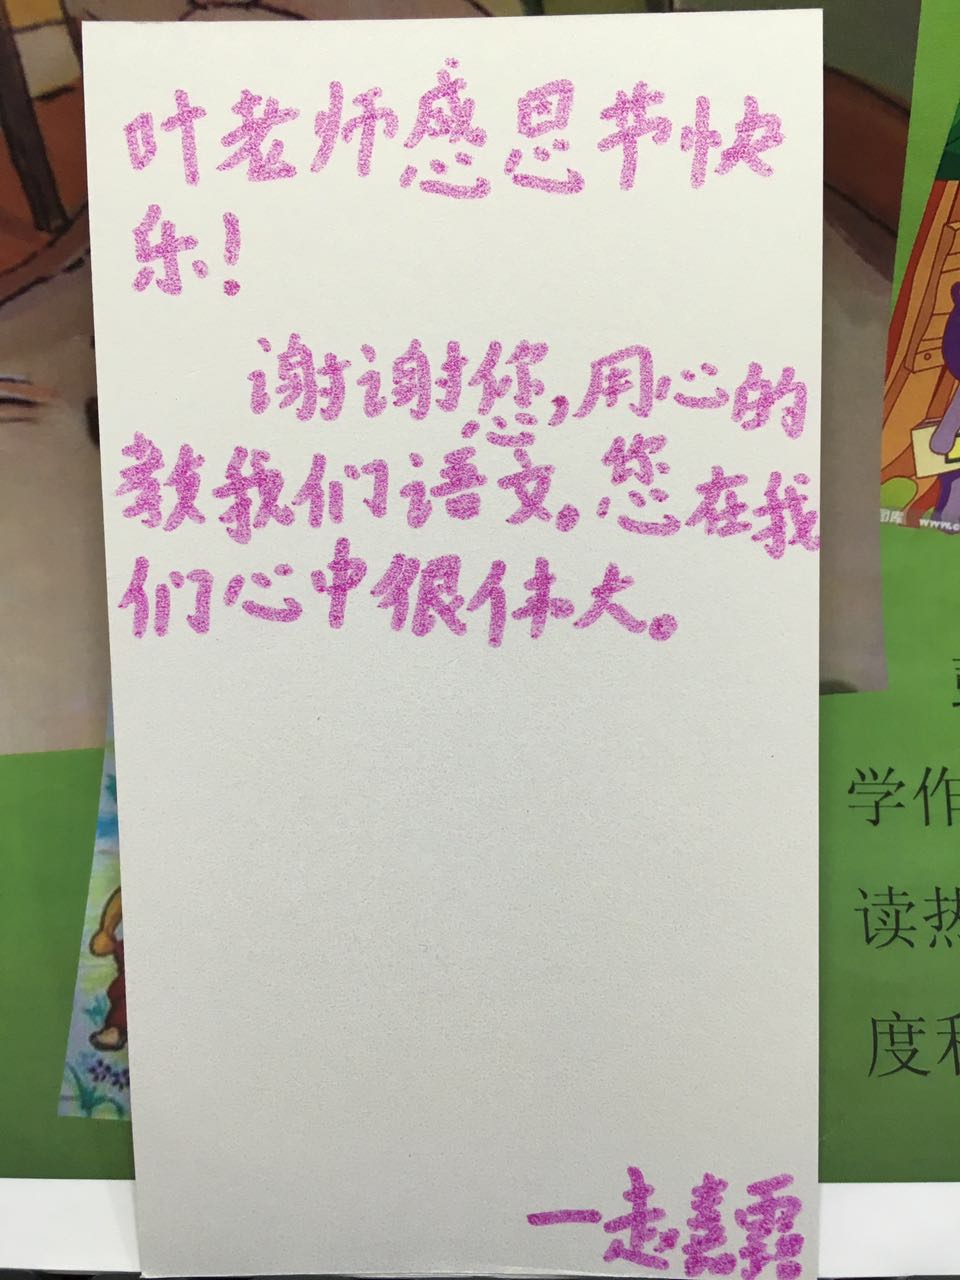 叶老师感恩节快
乐！
谢谢您,用心的
教我们语文。您在我
们心中很伟大。
—赵嘉
学作
读热
度
www.